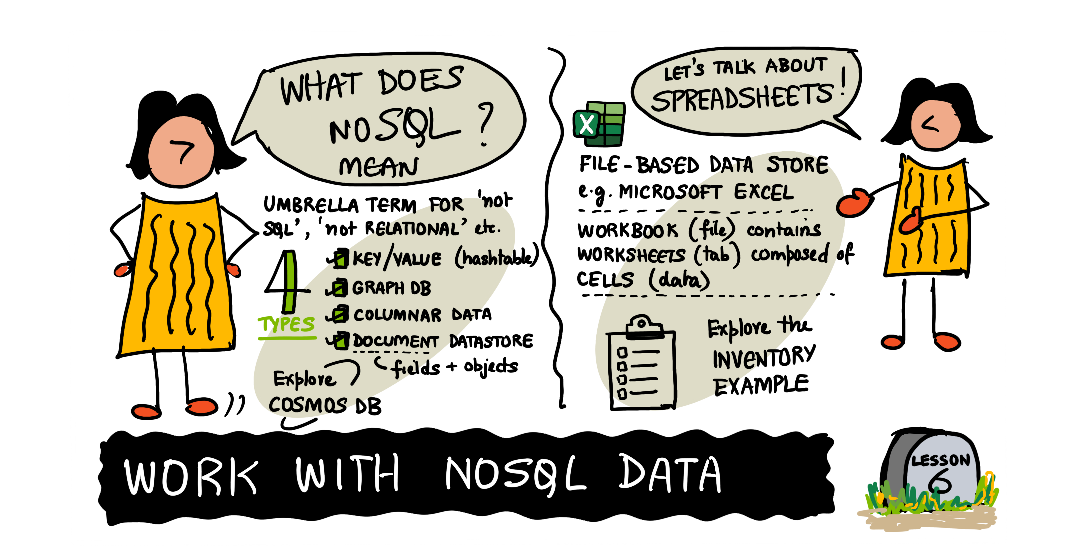 WHAT DOES
NOSQL ?
MEAN
UMBRELLA TERM FOR 'not
SQL', 'not RELATIONAL' etc.
4
TYPES
KEY/VALUE (hashtable)
GRAPH DB
COLUMNAR DATA
DOCUMENT DATASTORE
fields + objects
Explore
COSMOS DB
LET'S TALK ABOUT
SPREADSHEETS!
X
FILE-BASED DATA STORE
e.g. MICROSOFT EXCEL
WORKBOOK (file) contains
WORKSHEETS (tab) composed of
CELLS (data)
Explore the
INVENTORY
EXAMPLE
WORK WITH NOSQL DATA
LESSON
6